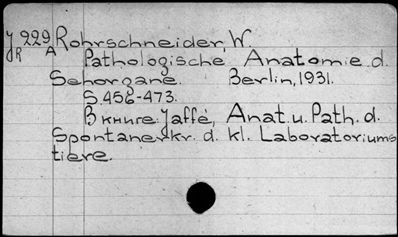 J 229 Rohrschneider, W.
R A Pathologische Anatomie d.
Sehorgane. Berlin, 1931.
S. 456-473.
В книге: Jaffé, Anat. u. Path. d.
Spontanerkr. d. kl. Laboratoriums
tiere.